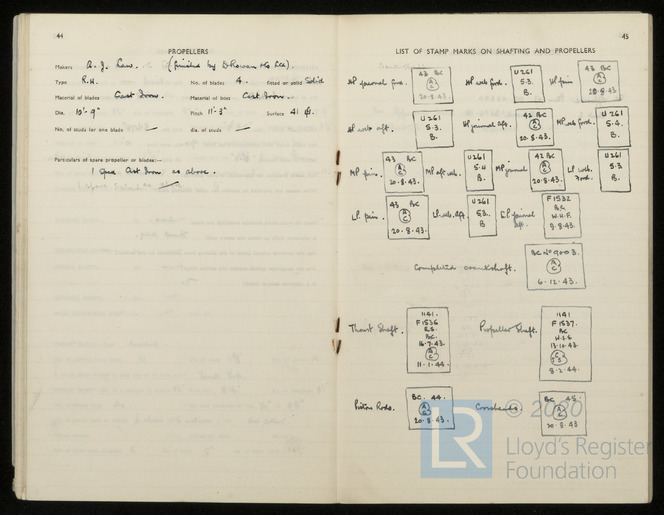 44
PROPELLERS
Makers A. J. Law. (finished by D Rowan & Co Ltd).
Type R.H. No. of blades 4. fitted or solid Solid
Material of blades Cast Iron. Material of boss Cast Iron.
Dia. 10'-9" Pitch 11'-3" Surface 41
No. of studs for one blade dia. of studs
Particulars of spare propeller or blades:-
1 Cast Iron as above.
45
LIST OF STAMP MARKS ON SHAFTING AND PROPELLERS
HP journal ford. 43 BC A C 20.8.43
HP web ford. U261 5.3. B.
HP pin 43 BC A C 20.8.43
HP web aft. U261 5.3. B.
HP journal aft. 42 BC A C 20.8.43.
MP web ford. U261 5.4. B.
MP pin. 43 BC A C 20.8.43.
MP aft web. U261 5.4 B.
MP journal 42 BC A C 20.8.43.
LP web ford. U261 5.3. B.
LP pin. 43 BC A C 20.8.43.
LP web aft. U261 5.3. B
LP journal aft. F1532 W.H.F. 9.8.43.
Completed crankshaft. BC No 9003. A C 6.12.43.
Thrust Shaft. 1141. F1536 BC. 16.7.43. A C 11.1.44.
Propeller Shaft. 1141 F1537. BC 13.10.43 8.2.44.
Piston Rods. BC. 44. A C 20.8.43
BC 45. A C 20.8.43
© 2020
LR
Lloyd's Register
Foundation